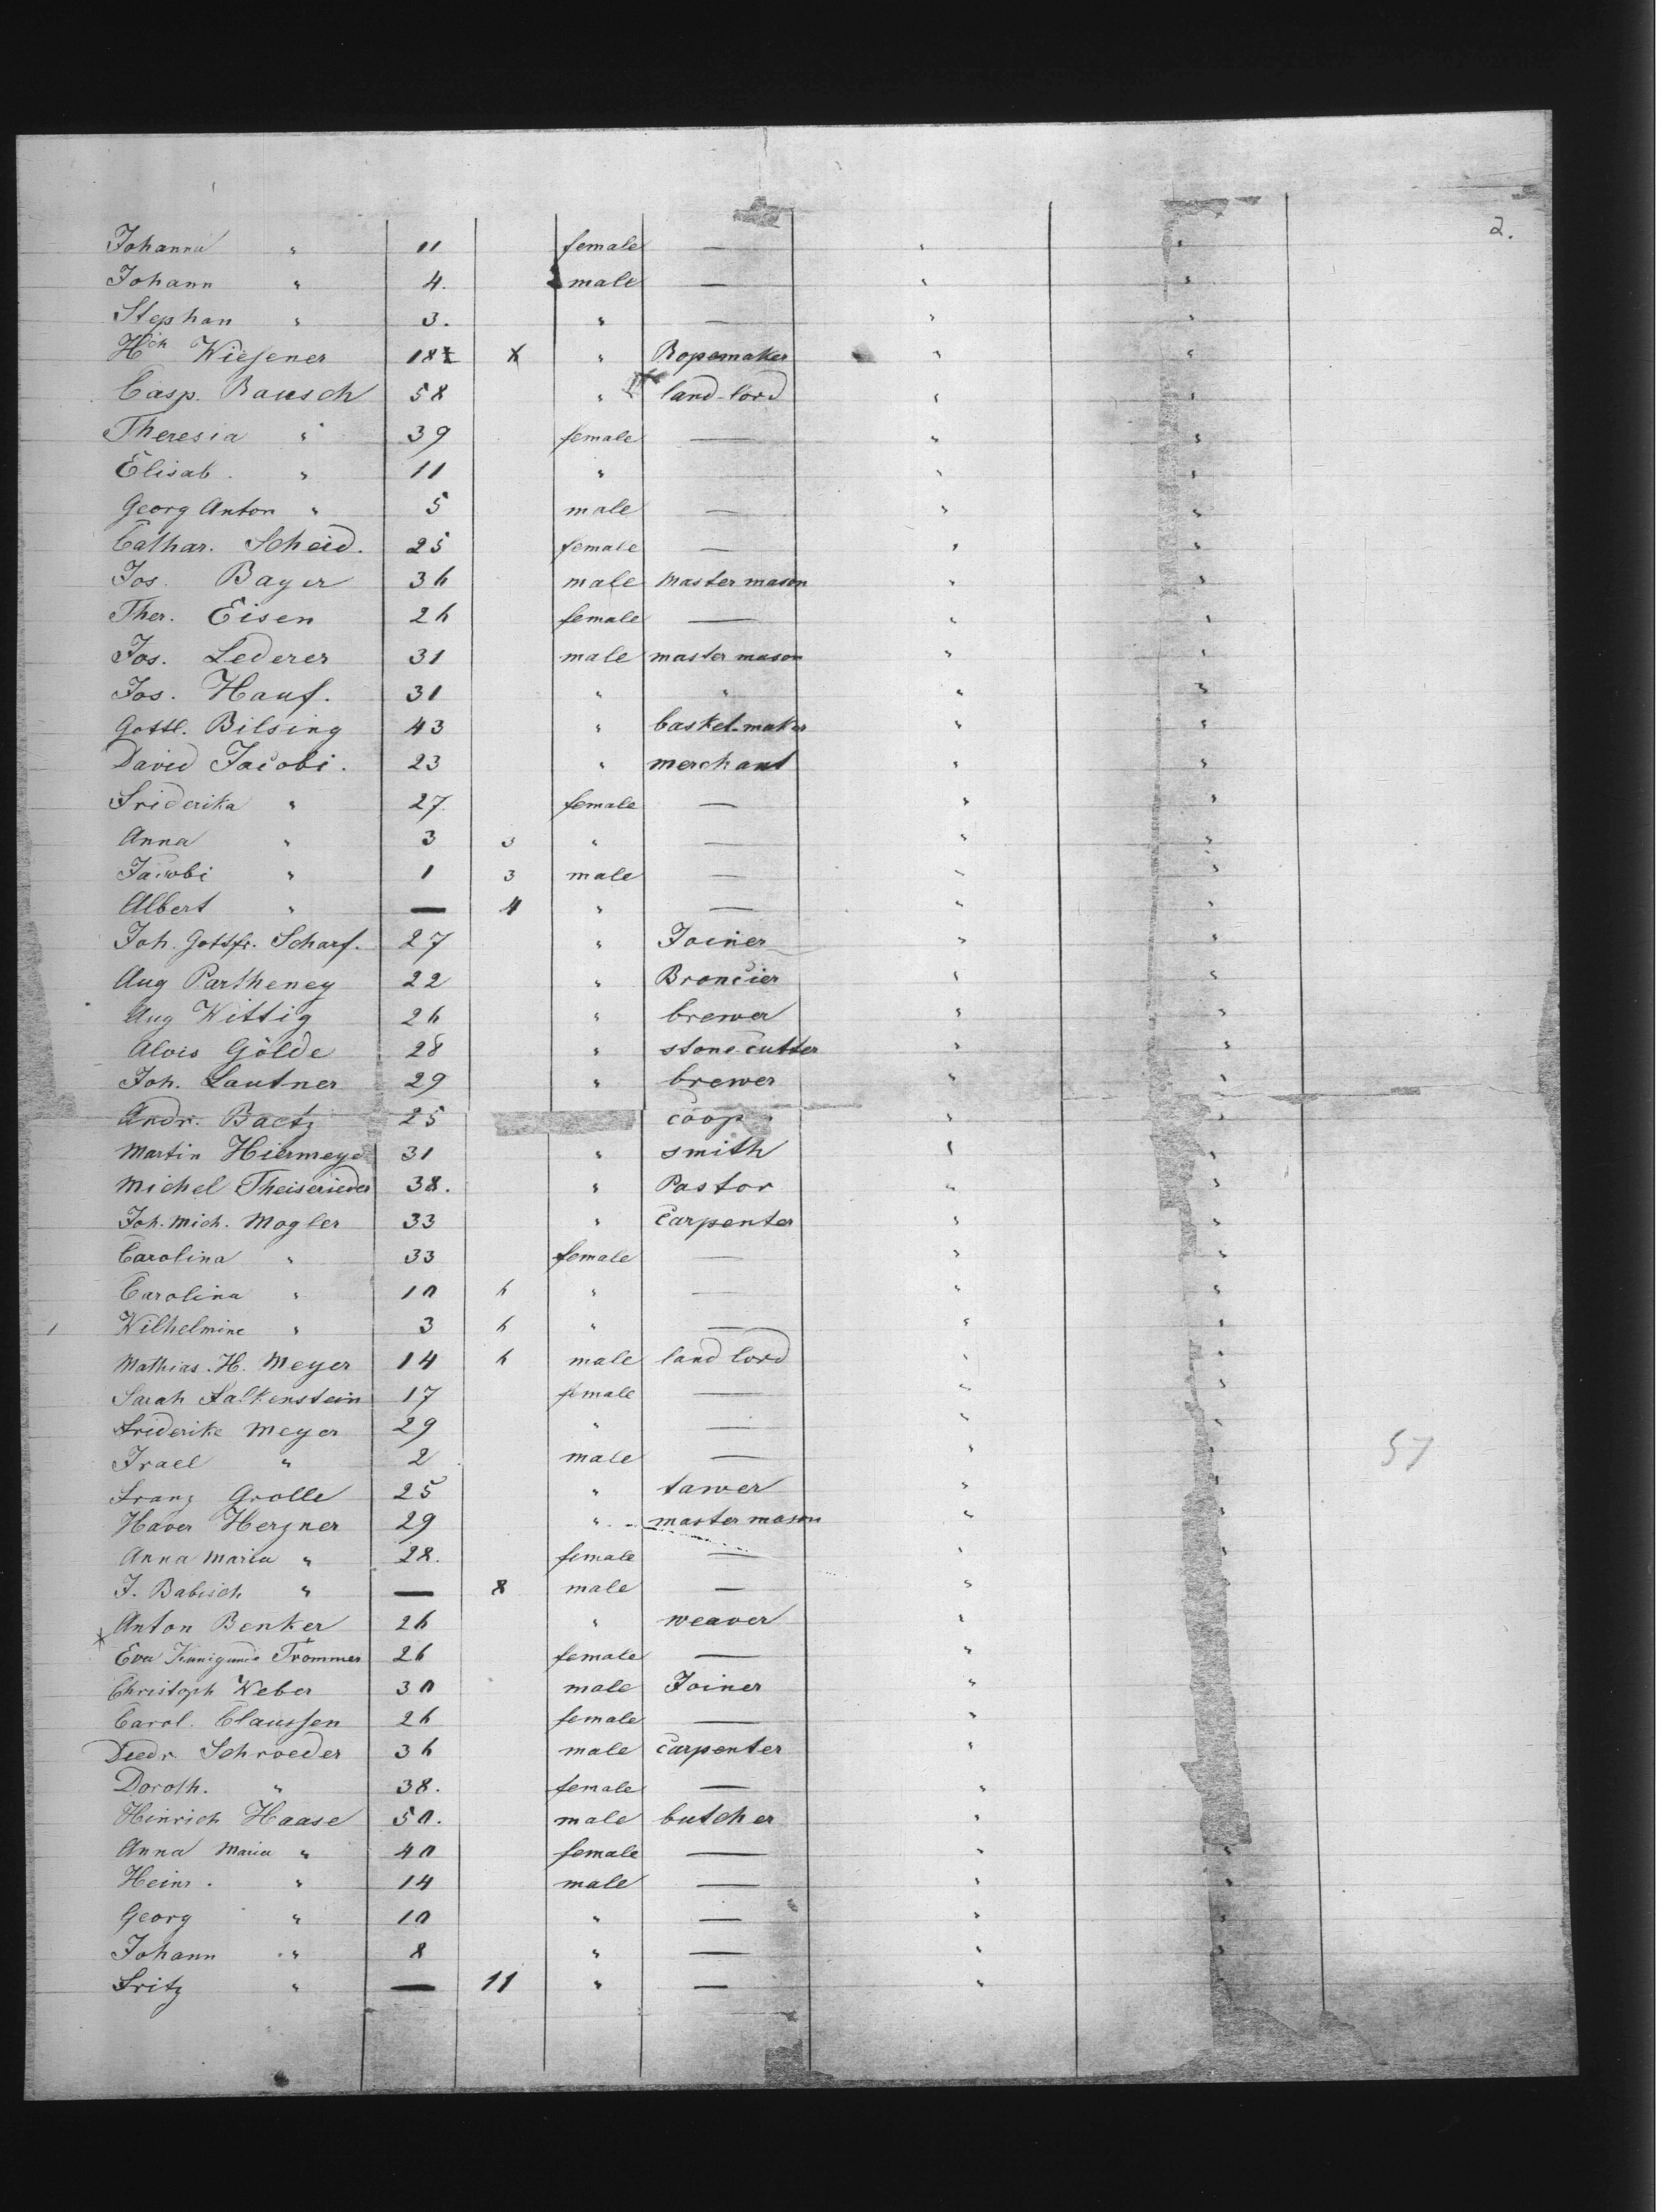 2.
Johanna " 11 female — " "
Johann " 4. male — " "
Stephan " 3. " — " "
Hch Wiesener 18 X " Ropemaker " "
Casp. Bausch 58 " land-lord " "
Theresia " 39 female — " "
Elisab. " 11 " " "
Georg Anton " 5 male — " "
Cathar. Scheid. 25 female — " "
Jos. Bayer 36 male Master mason " "
Ther. Eisen 26 female — " "
Jos. Lederer 31 male master mason " "
Jos. Hauf. 31 " " " "
Gottl. Bilsing 43 " basket-maker " "
David Jacobi. 23 " merchant " "
Friderika " 27. female — " "
Anna " 3 3 " — " "
Jacobi " 1 3 male — " "
Albert " — 4 " — " "
Joh. Gottfr. Scharf. 27 " Joiner " "
Aug Partheney 22 " Broncier " "
Aug Wittig 26 " brewer " "
Alois Gölde 28 " stone-cutter " "
Joh. Lautner 29 " brewer " "
Andr. Baetz 25 coop " "
Martin Hiermeye 31 " smith " "
Michel Theiserieder 38. " Pastor " "
Joh. Mich. Mogler 33 " Carpenter " "
Carolina " 33 female — " "
Carolina " 10 6 " — " "
Wilhelmine " 3 6 " — " "
Mathias. H. Meyer 14 6 male land lord " "
Sarah Falkenstein 17 female — " "
Friderike Meyer 29 " — " "
Israel " 2 male — " " 57
Franz Grolle 25 " tawer " "
Xaver Herzner 29 " master mason " "
Anna Maria " 28. female — " "
J. Babisch " — 8 male — "
Anton Benker 26 " weaver "
* Eva Kunigunde Trommer 26 female — "
Christoph Weber 30 male Joiner "
Carol. Claussen 26 female — "
Diedr. Schroeder 36 male Carpenter "
Doroth. " 38. female — "
Hinrich Haase 50. male butcher "
Anna Maria " 40 female — " "
Heinr. " 14 male — " "
Georg " 10 " — " "
Johann " 8 " — " "
Fritz " — 11 " — "